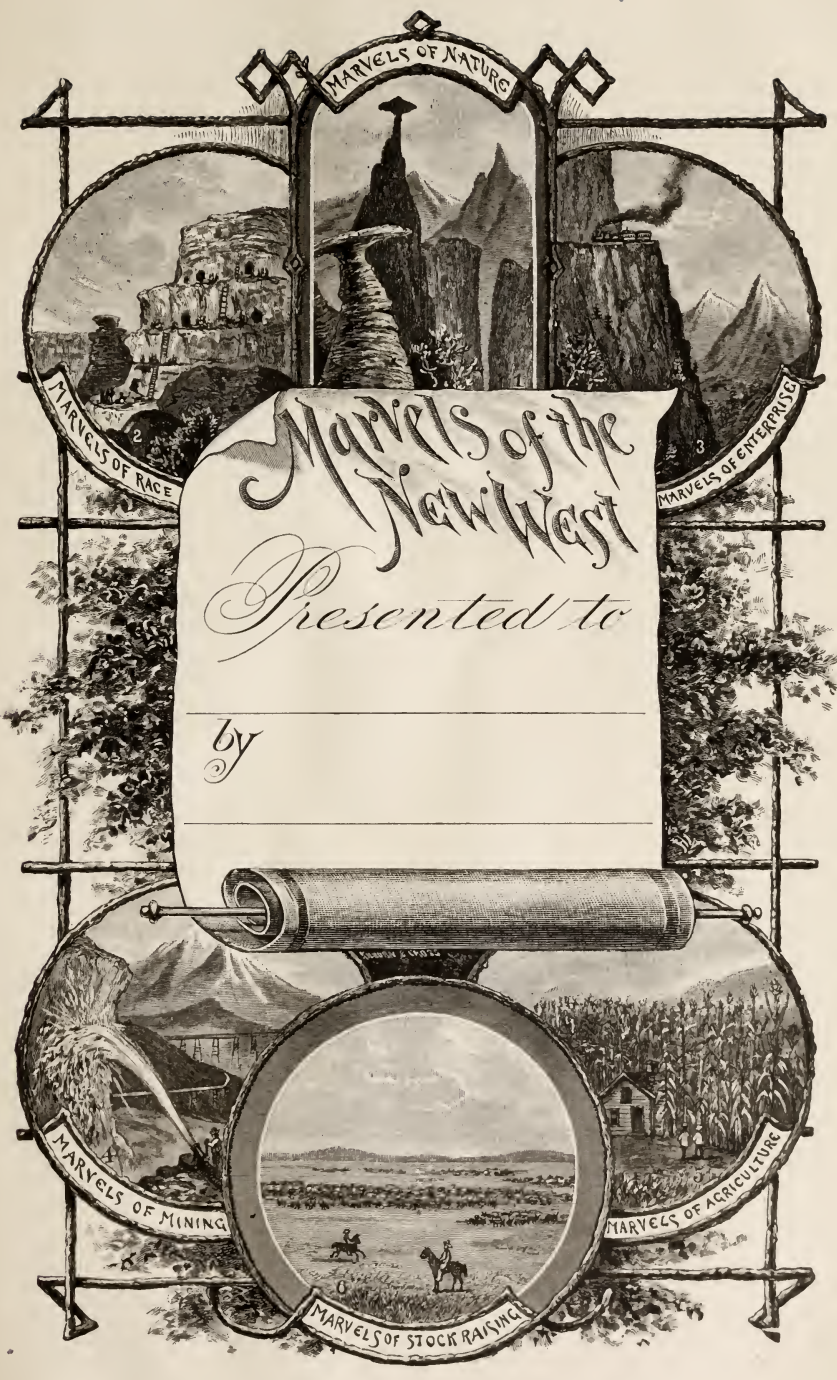 MARVELS OF NATURE
MARVELS OF RACE
MARVELS OF ENTERPRISE
1
2
3
Marvels of the
NEW WEST
Presented to
by
4
5
MARVELS OF MINING
MARVELS OF AGRICULTURE
6
MARVELS OF STOCK RAISING